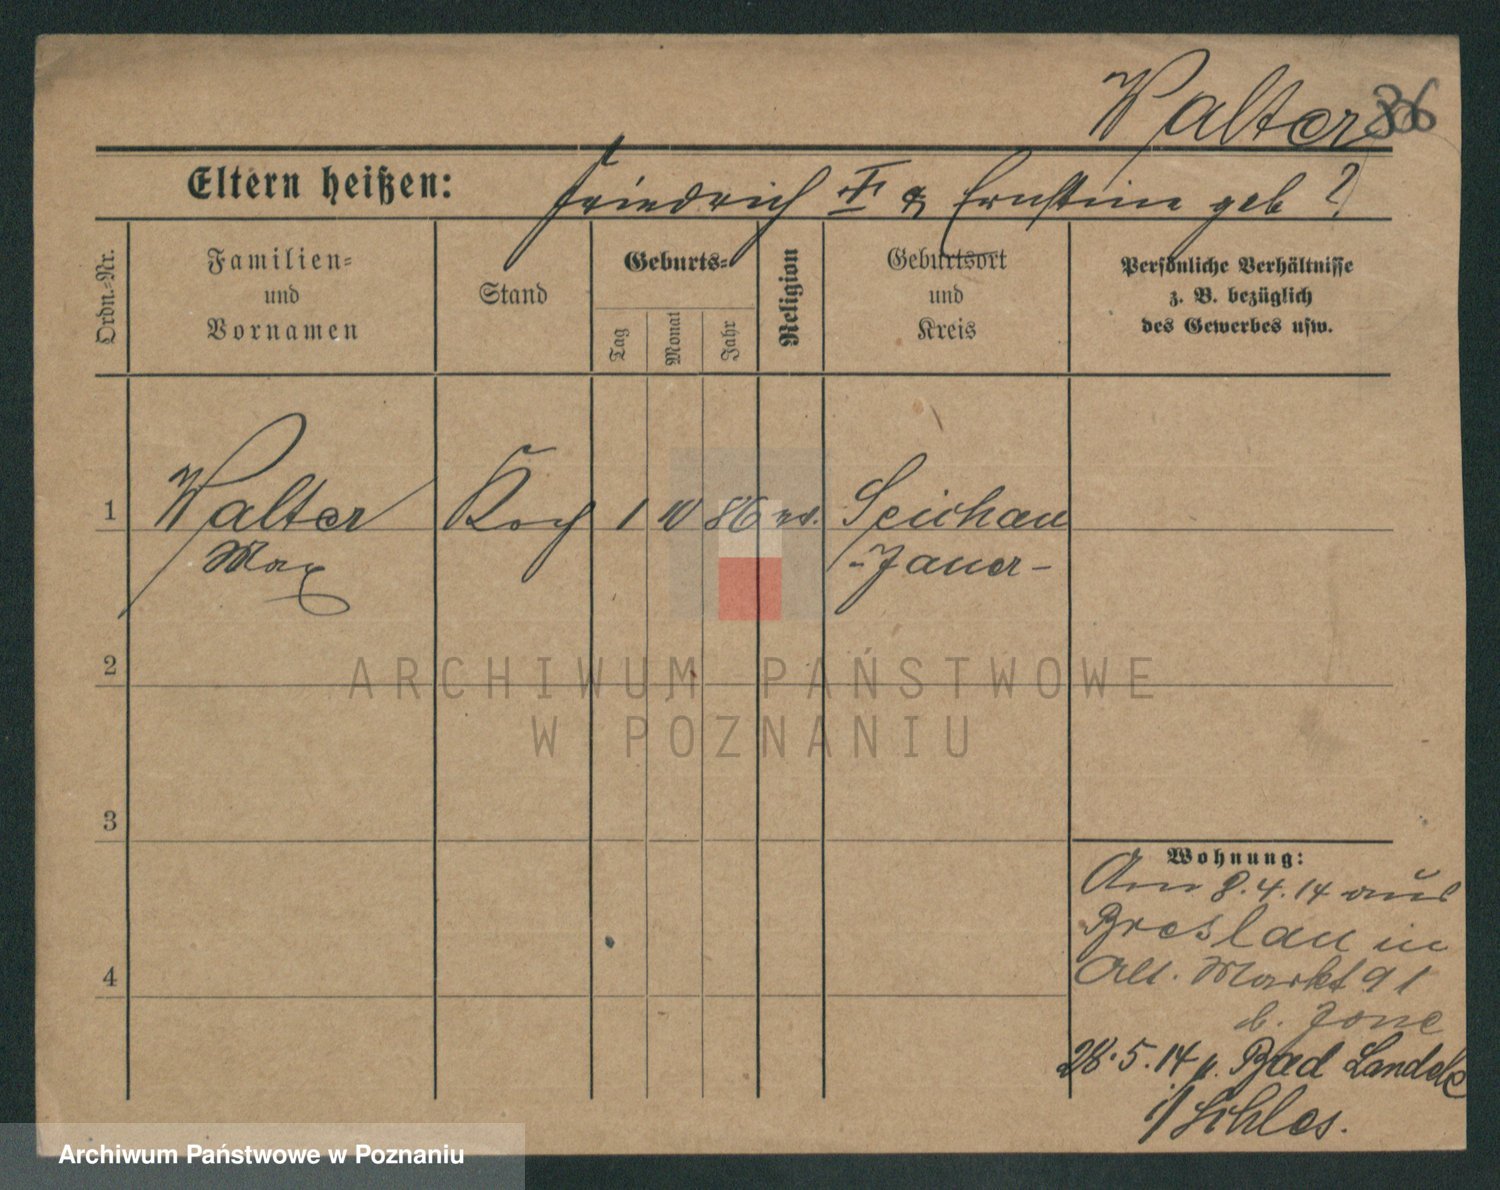 Walter 86
Eltern heißen: Friedrich & Ernstine geb ?
Ordn.=Nr.
Familien=
und
Vornamen
Stand
Geburts=
Tag
Monat
Jahr
Religion
Geburtsort
und
Kreis
Persönliche Verhältnisse
z. B. bezüglich
des Gewerbes usw.
1 Walter Koch 1 10 86 ev. Seichau
Max -Jauer-
2
3
4
Wohnung:
Am 8.4.14 aus
Breslau in
Alt. Markt 91
b. Jone
28.5.14 n. Bad Landek
i/Schles.
ARCHIWUM PAŃSTWOWE
W POZNANIU
Archiwum Państwowe w Poznaniu